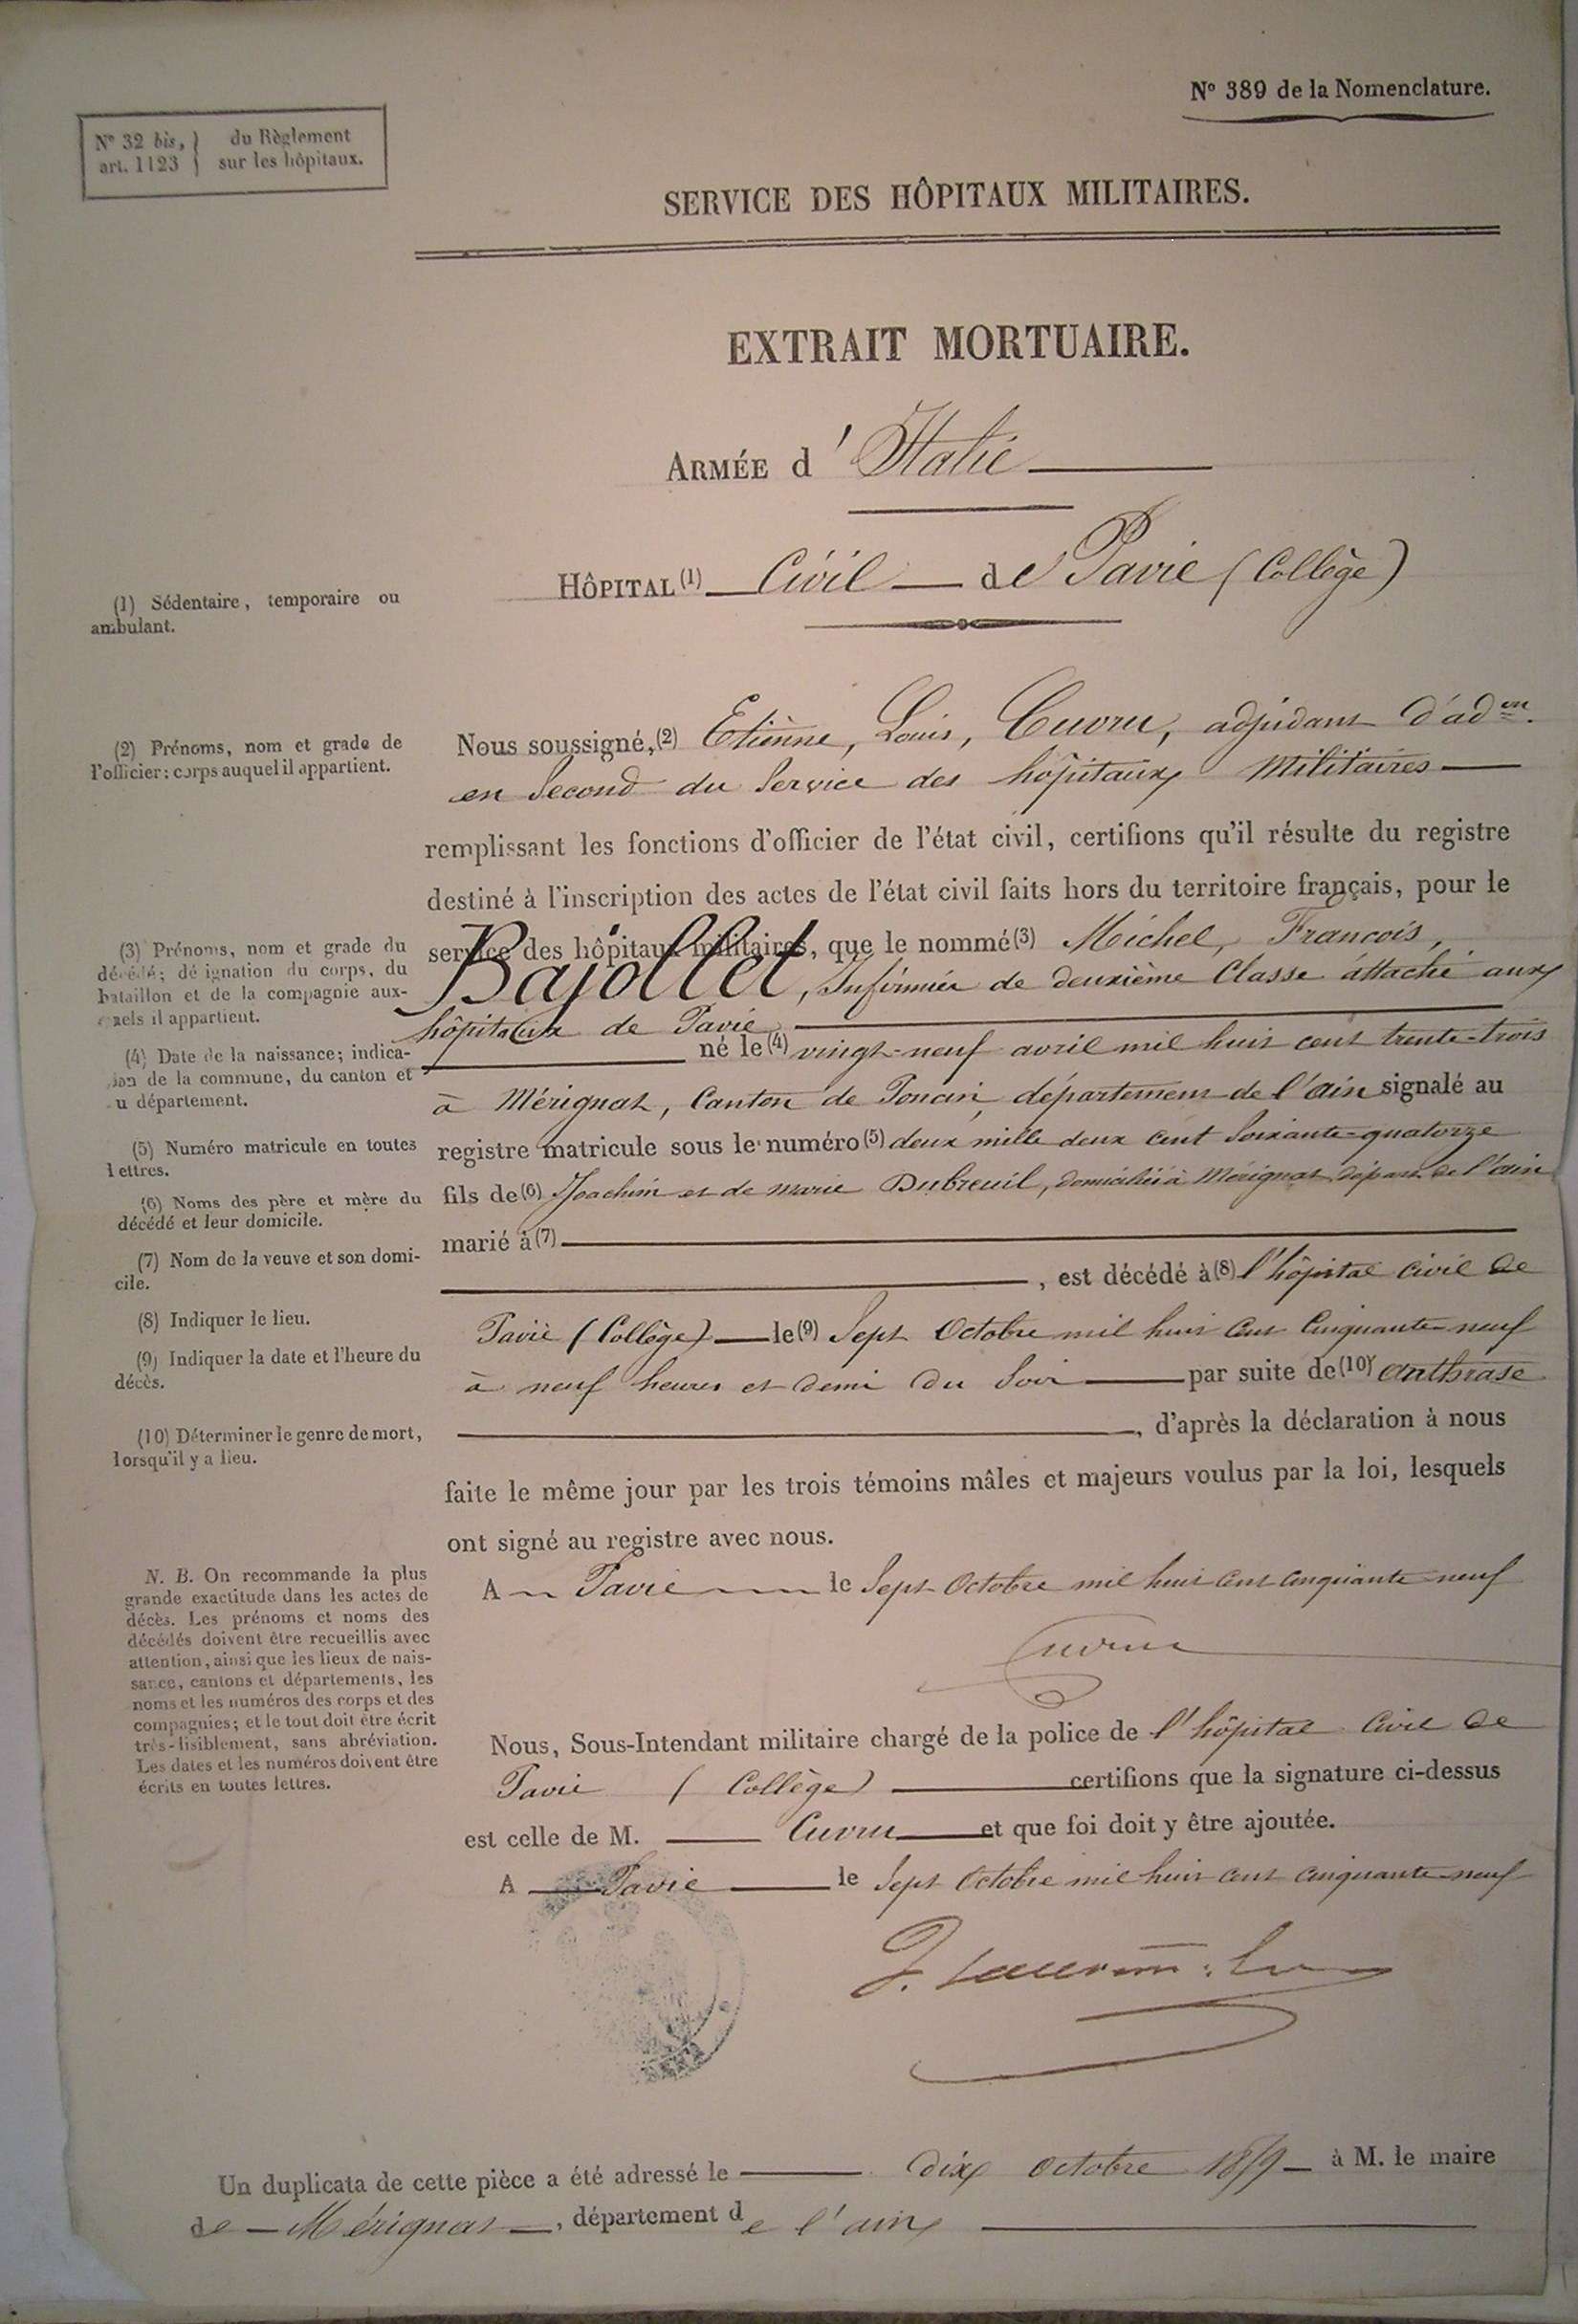 N° 389 de la Nomenclature.
N° 32 bis, } du Règlement
art. 1123 } sur les hôpitaux.
SERVICE DES HÔPITAUX MILITAIRES.
EXTRAIT MORTUAIRE.
ARMÉE d'Italie
HÔPITAL (1) Civil de Pavie (Collège)
(1) Sédentaire, temporaire ou
ambulant.
(2) Prénoms, nom et grade de
l'officier: corps auquel il appartient.
Nous soussigné, (2) Etienne, Louis, Cuvru, adjudant d'ad.on
en Second du Service des hôpitaux Militaires
remplissant les fonctions d'officier de l'état civil, certifions qu'il résulte du registre
destiné à l'inscription des actes de l'état civil faits hors du territoire français, pour le
service des hôpitaux militaires, que le nommé (3) Michel, François,
Bajollet, Infirmier de deuxième Classe attaché aux
hôpitaux de Pavie
né le (4) vingt-neuf avril mil huit cent trente-trois
à Mérignat, Canton de Poncin, département de l'ain signalé au
registre matricule sous le numéro (5) deux mille deux cent soixante-quatorze
fils de (6) Joachim et de marie Dubreuil, domicilié à Mérignat départ. de l'ain
marié à (7)
, est décédé à (8) l'hôpital civil de
Pavie (Collège) le (9) Sept Octobre mil huit cent Cinquante-neuf
à neuf heures et demi du Soir par suite de (10) anthrase
, d'après la déclaration à nous
faite le même jour par les trois témoins mâles et majeurs voulus par la loi, lesquels
ont signé au registre avec nous.
A Pavie le Sept Octobre mil huit cent cinquante neuf
Cuvru
(3) Prénoms, nom et grade du
décédé; désignation du corps, du
bataillon et de la compagnie aux-
quels il appartient.
(4) Date de la naissance; indica-
tion de la commune, du canton et
du département.
(5) Numéro matricule en toutes
lettres.
(6) Noms des père et mère du
décédé et leur domicile.
(7) Nom de la veuve et son domi-
cile.
(8) Indiquer le lieu.
(9) Indiquer la date et l'heure du
décès.
(10) Déterminer le genre de mort,
lorsqu'il y a lieu.
N. B. On recommande la plus
grande exactitude dans les actes de
décès. Les prénoms et noms des
décédés doivent être recueillis avec
attention, ainsi que les lieux de nais-
sance, cantons et départements, les
noms et les numéros des corps et des
compagnies; et le tout doit être écrit
très-lisiblement, sans abréviation.
Les dates et les numéros doivent être
écrits en toutes lettres.
Nous, Sous-Intendant militaire chargé de la police de l'hôpital Civil de
Pavie (Collège) certifions que la signature ci-dessus
est celle de M. Cuvru et que foi doit y être ajoutée.
A Pavie le Sept Octobre mil huit cent cinquante neuf
Un duplicata de cette pièce a été adressé le dix octobre 1859 à M. le maire
de Mérignat, département de l'ain